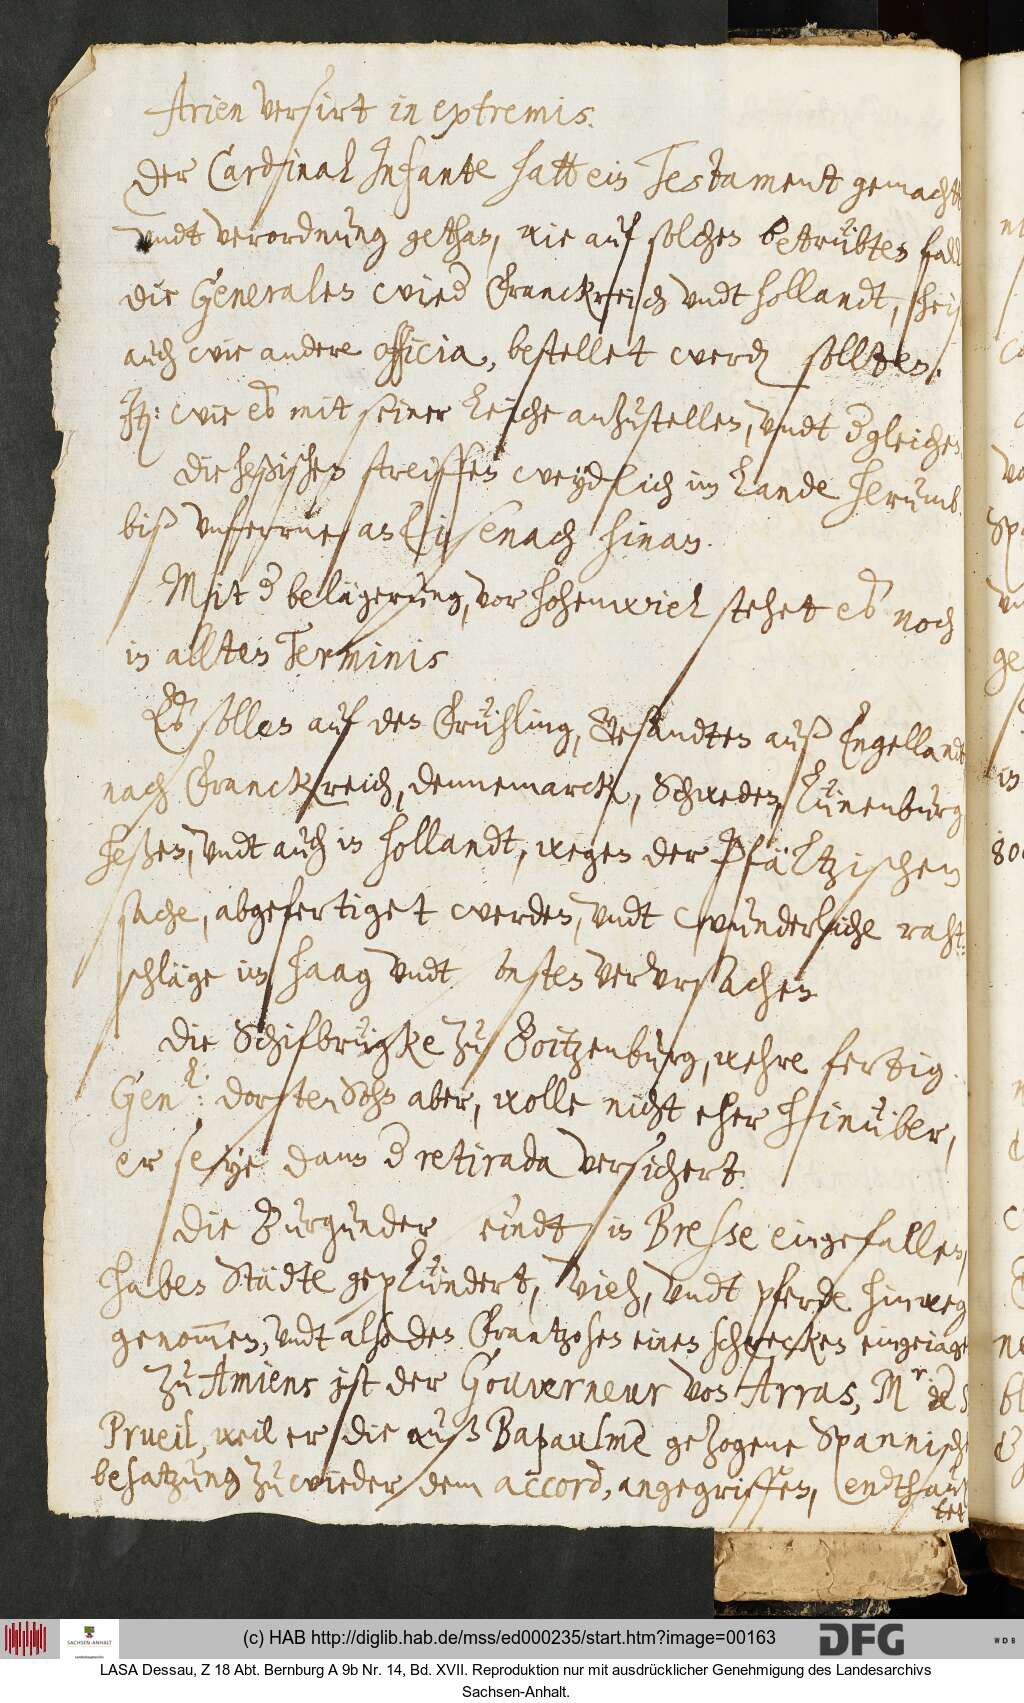 Arien versirt in extremis.
Der Cardinal Infante hatt ein Testament gemachtt
vndt verordnung gethan, wie auf solchen betrübten fall
die Generalen wied Franckreich vndt hollandt,
auch wie andere officia, bestellet werd sollten.
It: wie es mit seiner Leiche anzustellen, vndt dgleichen.
Die heßischen streiffen weydlich im Lande herumb.
biß vnfferrne an Eisenach hinan.
Mit d belägerung, vor hohenwiel stehet es noch
in allten Terminis
Es sollen auf den Frühling, Gesandten auß Engellandt
nach Franckreich, dennemarck, Schweden, Lünenburg
heßen, vndt auch in hollandt, wegen der Pfältzischen
sache, abgefertiget werden, vndt wunderliche raht:
schläge im Haag vndt vervrsachen
Die Schifbrügke zu Boitzenburg, wehre fertig.
Gen: l: dorsten Sohn aber, wolle nicht eher hinüber,
er seye dann d retirada versichert.
Die Burgunder seindt in Bresse eingefallen,
haben Städte geplündert, vieh, vndt pferde hinweg
genommen, vndt also den Frantzosen einen schrecken eingeiagt
Zu Amiens ist der Gouverneur von Arras, Mr de S
Prueil, weil er die auß Bapaulme gezogene Spannische
besatzung zuwieder dem accord, angegriffen, endthaup
tet
(c) HAB http://diglib.hab.de/mss/ed000235/start.htm?image=00163
SACHSEN-ANHALT
DFG
WDB
LASA Dessau, Z 18 Abt. Bernburg A 9b Nr. 14, Bd. XVII. Reproduktion nur mit ausdrücklicher Genehmigung des Landesarchivs
Sachsen-Anhalt.